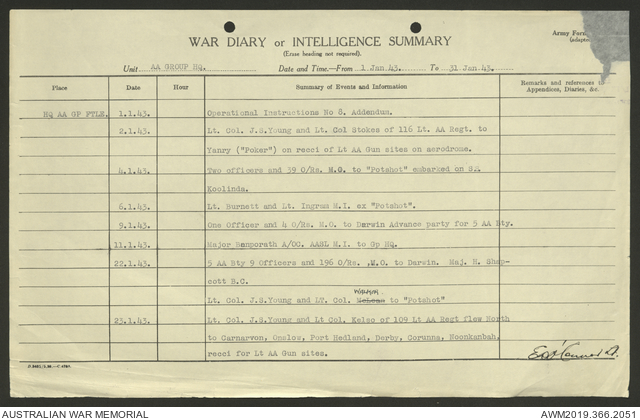 WAR DIARY or INTELLIGENCE SUMMARY
(Erase heading not required).
Army Form
(adapted
Unit AA GROUP HQ. Date and Time.—From 1 Jan 43. To 31 Jan 43.
Place Date Hour Summary of Events and Information Remarks and references to Appendices, Diaries, &c.
HQ AA GP FTLE. 1.1.43. Operational Instructions No 8. Addendum.
2.1.43. Lt. Col. J.S.Young and Lt. Col Stokes of 116 Lt. AA Regt. to
Yanry ("Poker") on recci of Lt AA Gun sites on aerodrome.
4.1.43. Two officers and 39 O/Rs. M.O. to "Potshot" embarked on SS
Koolinda.
6.1.43. Lt. Burnett and Lt. Ingram M.I. ex "Potshot".
9.1.43. One Officer and 4 O/Rs. M.O. to Darwin Advance party for 5 AA Bty.
11.1.43. Major Benporath A/OC. AASL M.I. to Gp HQ.
22.1.43. 5 AA Bty 9 Officers and 196 O/Rs. ,M.O. to Darwin. Maj. H. Shap-
cott B.C.
Lt. Col. J.S.Young and LT. Col. McLean to "Potshot"
23.1.43. Lt. Col. J.S.Young and Lt Col. Kelso of 109 Lt AA Regt flew North
to Carnarvon, Onslow, Port Hedland, Derby, Corunna, Noonkanbah,
recci for Lt AA Gun sites.
AUSTRALIAN WAR MEMORIAL AWM2019.366.2051